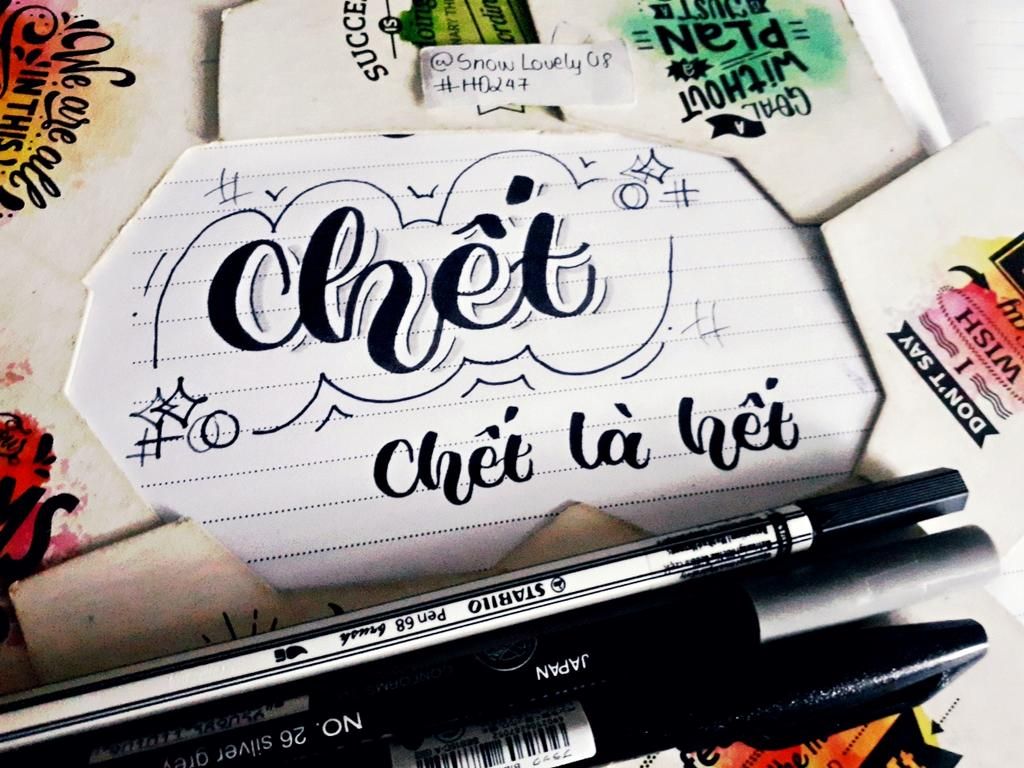 We are all
IN THIS
SUCCE
IS
@SnowLovely08
#HD247
A
GOAL
WITHOUT
PLAN
JUST
#
#
Chết
#
#
Chết là hết
DON'T SAY
I
WISH
STABILO Pen 68 brush
JAPAN
NO. 26 silver grey